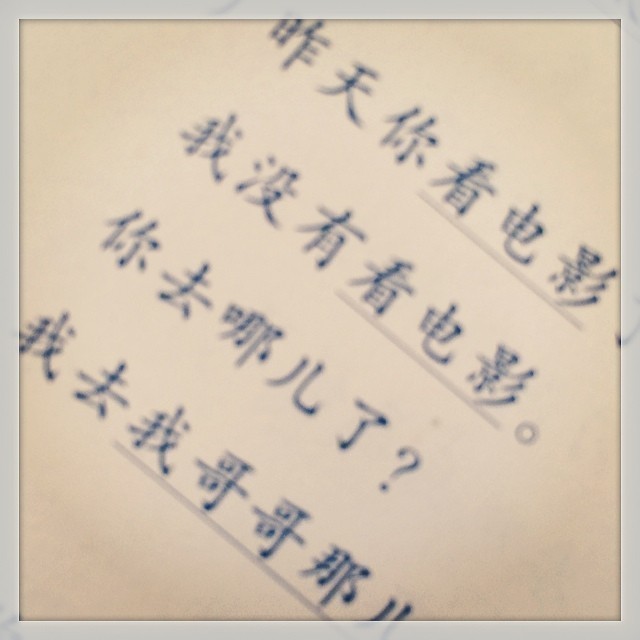 昨天你看电影
我没有看电影。
你去哪儿了?
我去我哥哥那儿